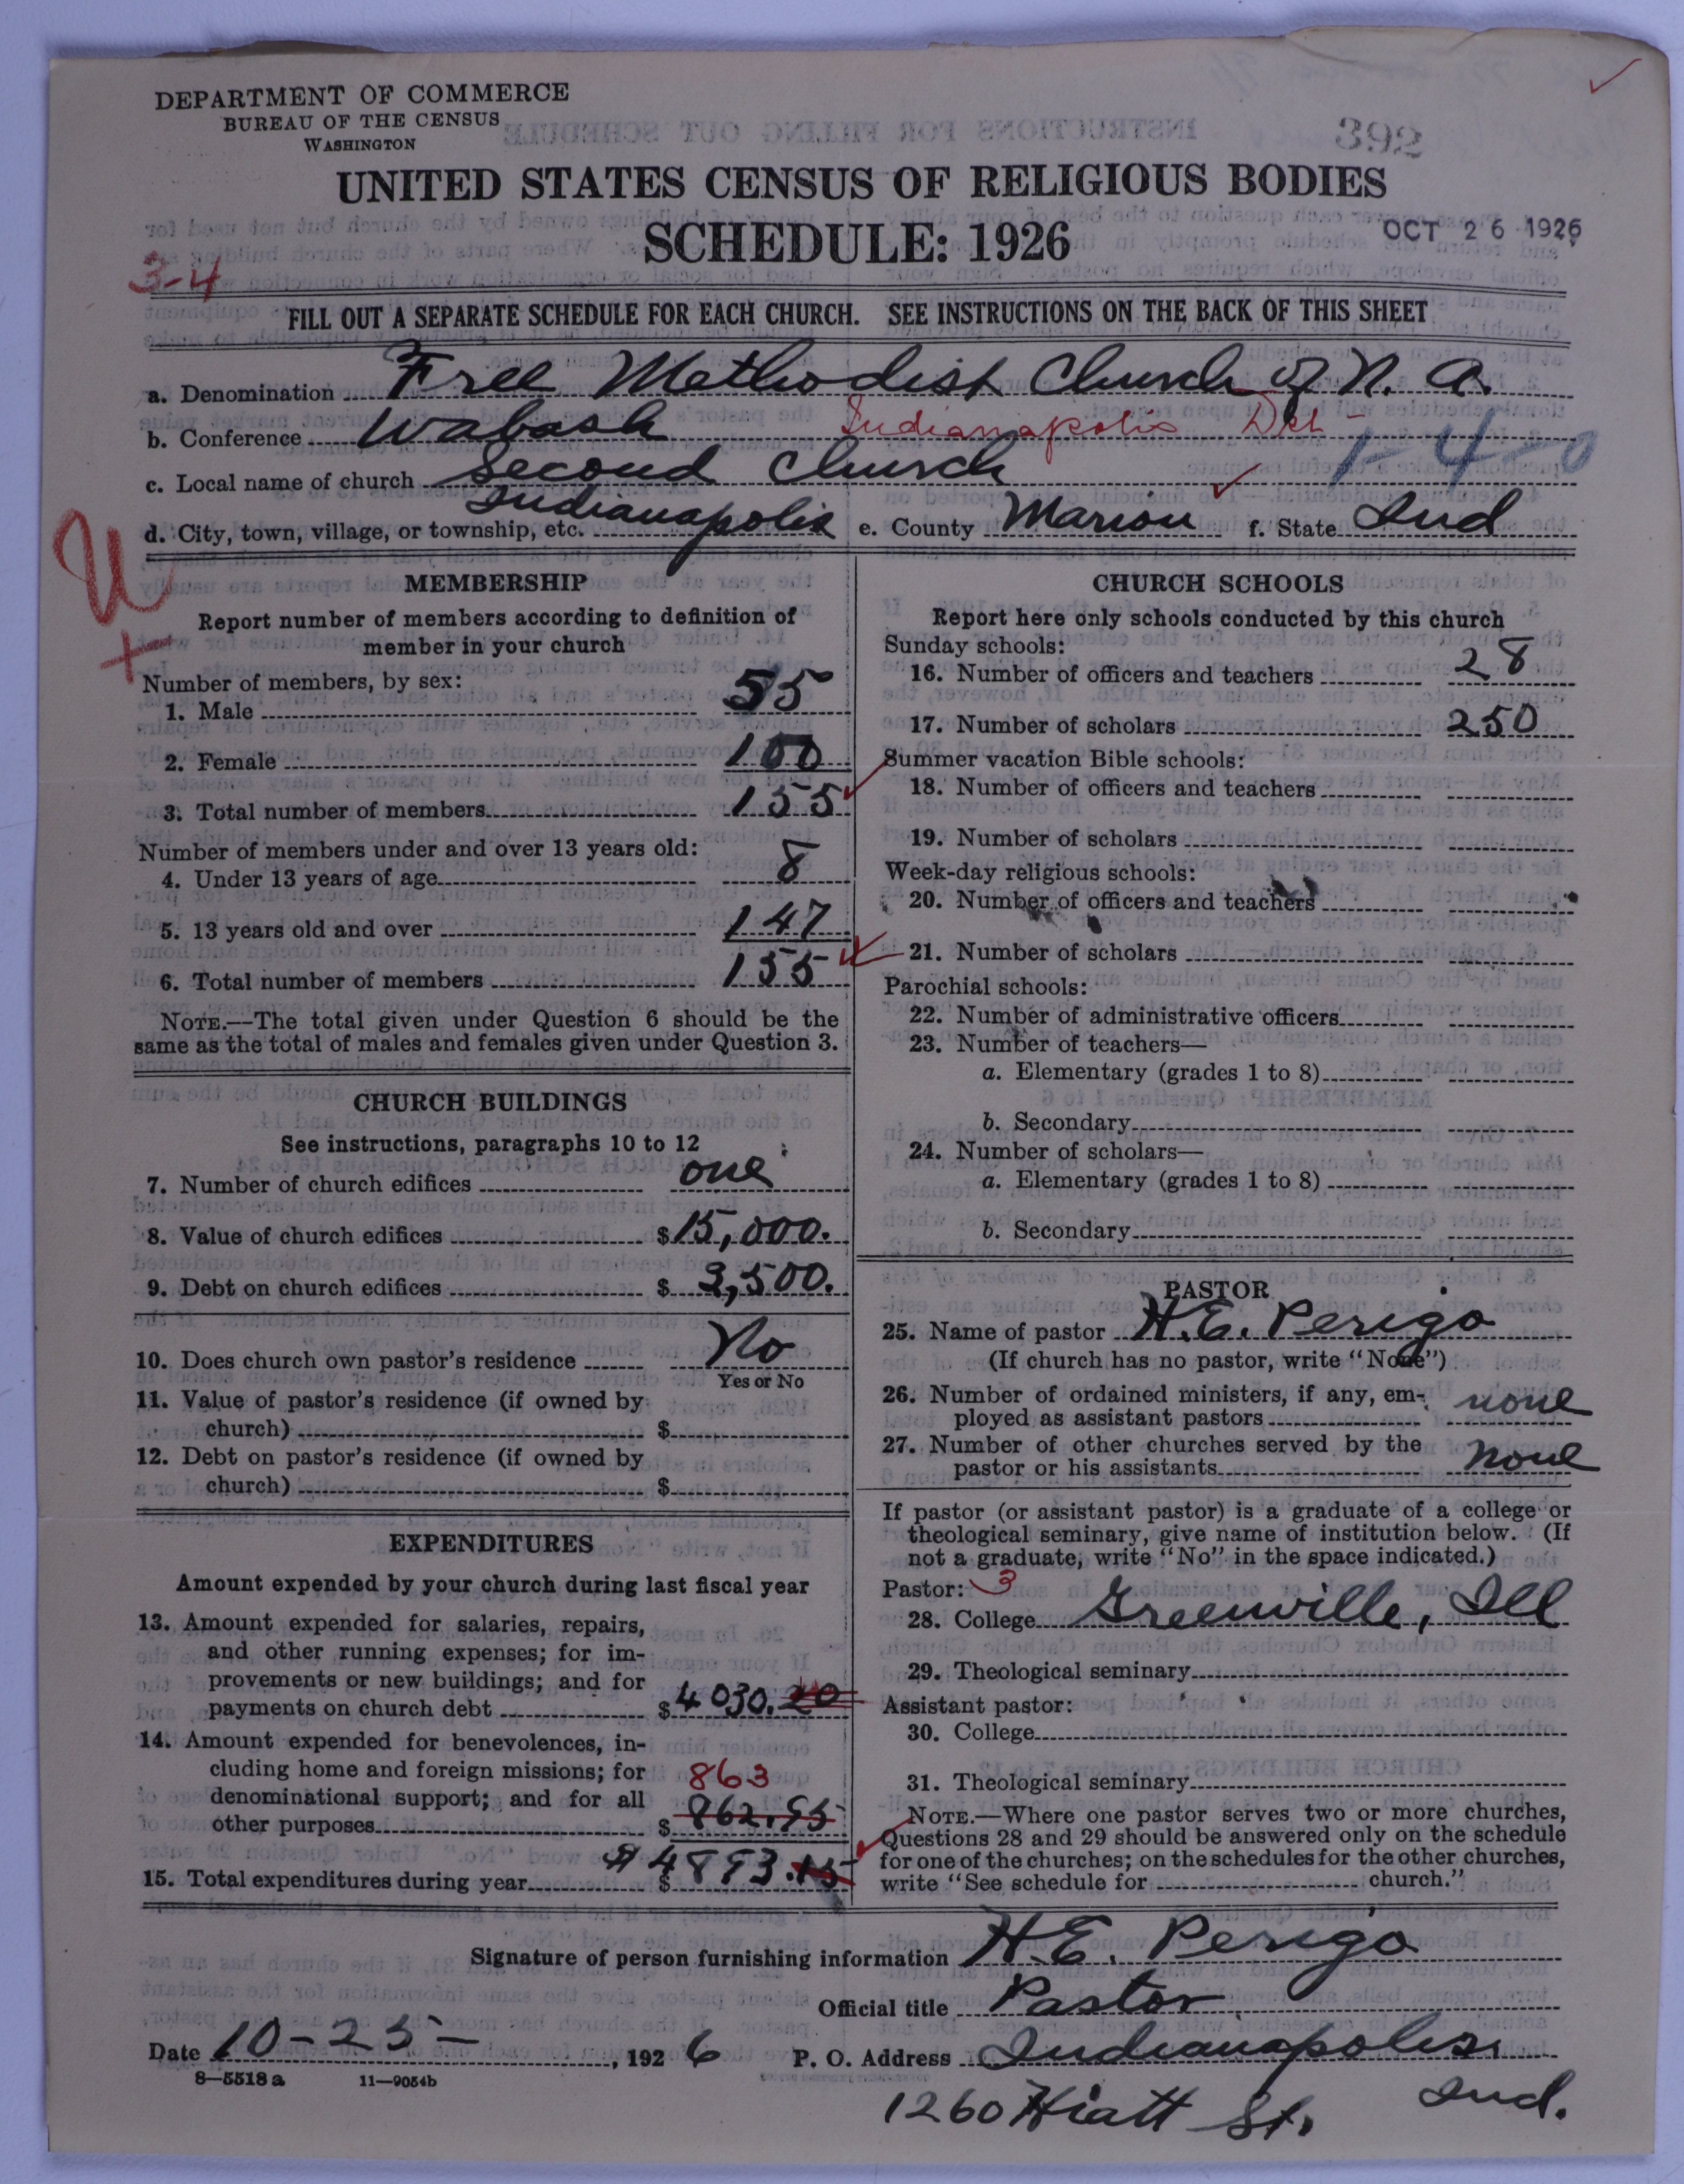 DEPARTMENT OF COMMERCE
BUREAU OF THE CENSUS
WASHINGTON
392
UNITED STATES CENSUS OF RELIGIOUS BODIES
SCHEDULE: 1926
OCT 26 1926
3-4
FILL OUT A SEPARATE SCHEDULE FOR EACH CHURCH. SEE INSTRUCTIONS ON THE BACK OF THIS SHEET
a. Denomination Free Methodist Church of N. A.
b. Conference Wabash Indianapolis Dist
c. Local name of church Second Church 1-4-0
d. City, town, village, or township, etc. Indianapolis e. County Marion f. State Ind
U
+
MEMBERSHIP
Report number of members according to definition of
member in your church
Number of members, by sex:
1. Male 55
2. Female 100
3. Total number of members 155
Number of members under and over 13 years old:
4. Under 13 years of age 8
5. 13 years old and over 147
6. Total number of members 155
NOTE.—The total given under Question 6 should be the
same as the total of males and females given under Question 3.
CHURCH BUILDINGS
See instructions, paragraphs 10 to 12
7. Number of church edifices one
8. Value of church edifices $ 15,000.
9. Debt on church edifices $ 3,500.
10. Does church own pastor's residence No
Yes or No
11. Value of pastor's residence (if owned by
church) $
12. Debt on pastor's residence (if owned by
church) $
EXPENDITURES
Amount expended by your church during last fiscal year
13. Amount expended for salaries, repairs,
and other running expenses; for im-
provements or new buildings; and for
payments on church debt $ 4030.20
14. Amount expended for benevolences, in-
cluding home and foreign missions; for
denominational support; and for all
863
other purposes $ 862.95
15. Total expenditures during year $ $4893.15
CHURCH SCHOOLS
Report here only schools conducted by this church
Sunday schools:
16. Number of officers and teachers 28
17. Number of scholars 250
Summer vacation Bible schools:
18. Number of officers and teachers
19. Number of scholars
Week-day religious schools:
20. Number of officers and teachers
21. Number of scholars
Parochial schools:
22. Number of administrative officers
23. Number of teachers—
a. Elementary (grades 1 to 8)
b. Secondary
24. Number of scholars—
a. Elementary (grades 1 to 8)
b. Secondary
PASTOR
25. Name of pastor H.E. Perigo
(If church has no pastor, write "None")
26. Number of ordained ministers, if any, em-
ployed as assistant pastors none
27. Number of other churches served by the
pastor or his assistants none
If pastor (or assistant pastor) is a graduate of a college or
theological seminary, give name of institution below. (If
not a graduate, write "No" in the space indicated.)
Pastor: 3
28. College Greenville, Ill
29. Theological seminary
Assistant pastor:
30. College
31. Theological seminary
NOTE.—Where one pastor serves two or more churches,
Questions 28 and 29 should be answered only on the schedule
for one of the churches; on the schedules for the other churches,
write "See schedule for church."
Signature of person furnishing information H.E. Perigo
Official title Pastor
Date 10-25-, 1926 P. O. Address Indianapolis,
8—5518a 11—9054b
1260 Hiatt St. Ind.